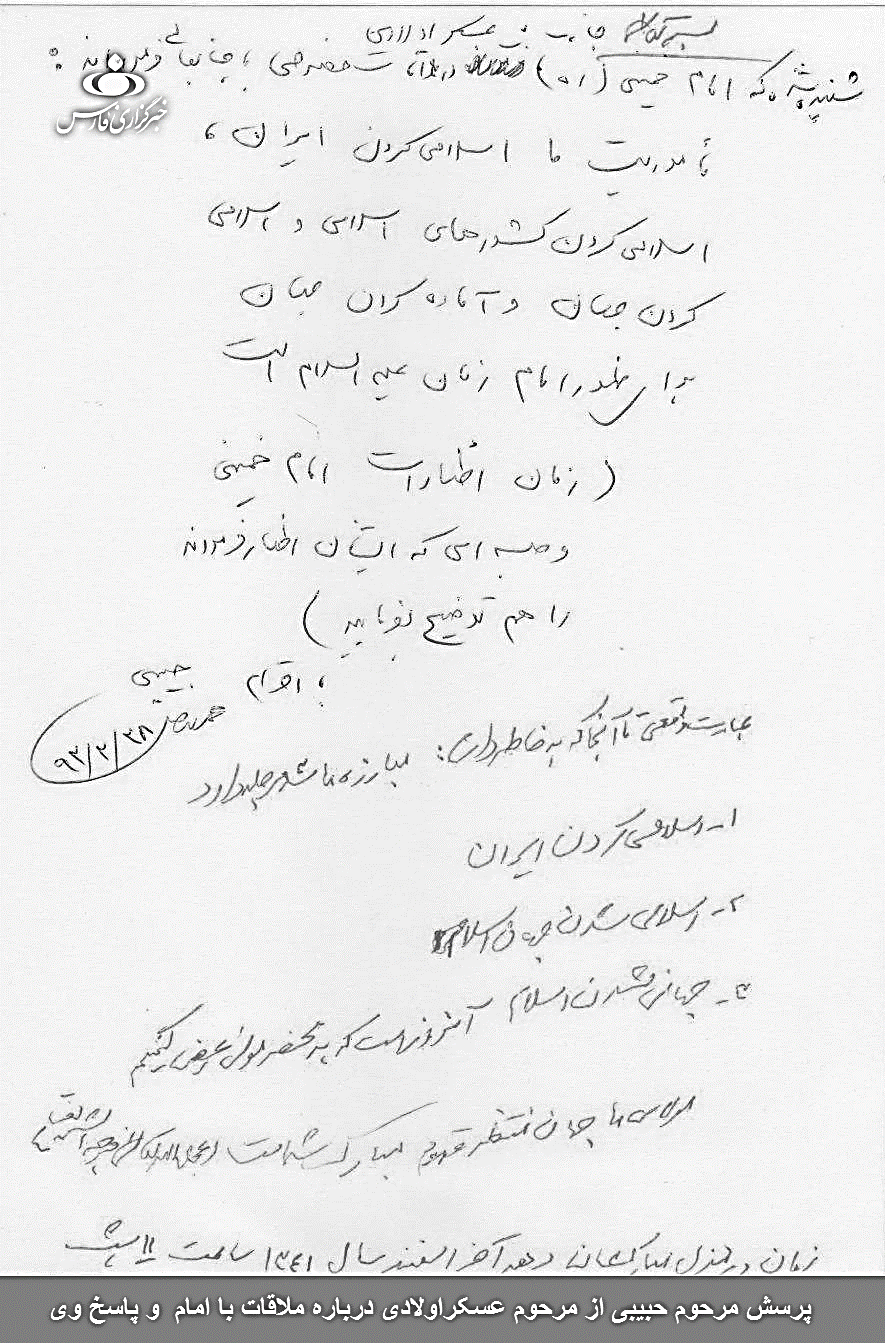 بسمه تعالی جناب آقای عسکراولادی
شنیده شد که امام خمینی (ره) در ملاقات خصوصی با جنابعالی فرموده‌اند:
خبرگزاری فارس
مأموریت ما اسلامی کردن ایران،
اسلامی کردن کشورهای اسلامی و اسلامی
کردن جهان و آماده کردن جهان
برای ظهور امام زمان علیه السلام است
(زمان اظهارات امام خمینی
و جلسه ای که ایشان اظهار فرمودند
را هم توضیح بفرمایید)
با احترام حبیبی
۹۳/۲/۲۸
عبارت واقعی تا آنجا که به خاطر دارم: مبارزه ما سه مرحله دارد
۱- اسلامی کردن ایران
۲- اسلامی شدن جهان اسلام
۳- جهانی شدن اسلام آنروز است که به محضر مولی عرض کنیم
مولای ما جهان منتظر قدوم مبارک شماست
زمان در منزل مبارکشان دهه آخر اسفند سال ۱۳۴۱ ساعت ۱۱
پرسش مرحوم حبیبی از مرحوم عسکراولادی درباره ملاقات با امام و پاسخ وی